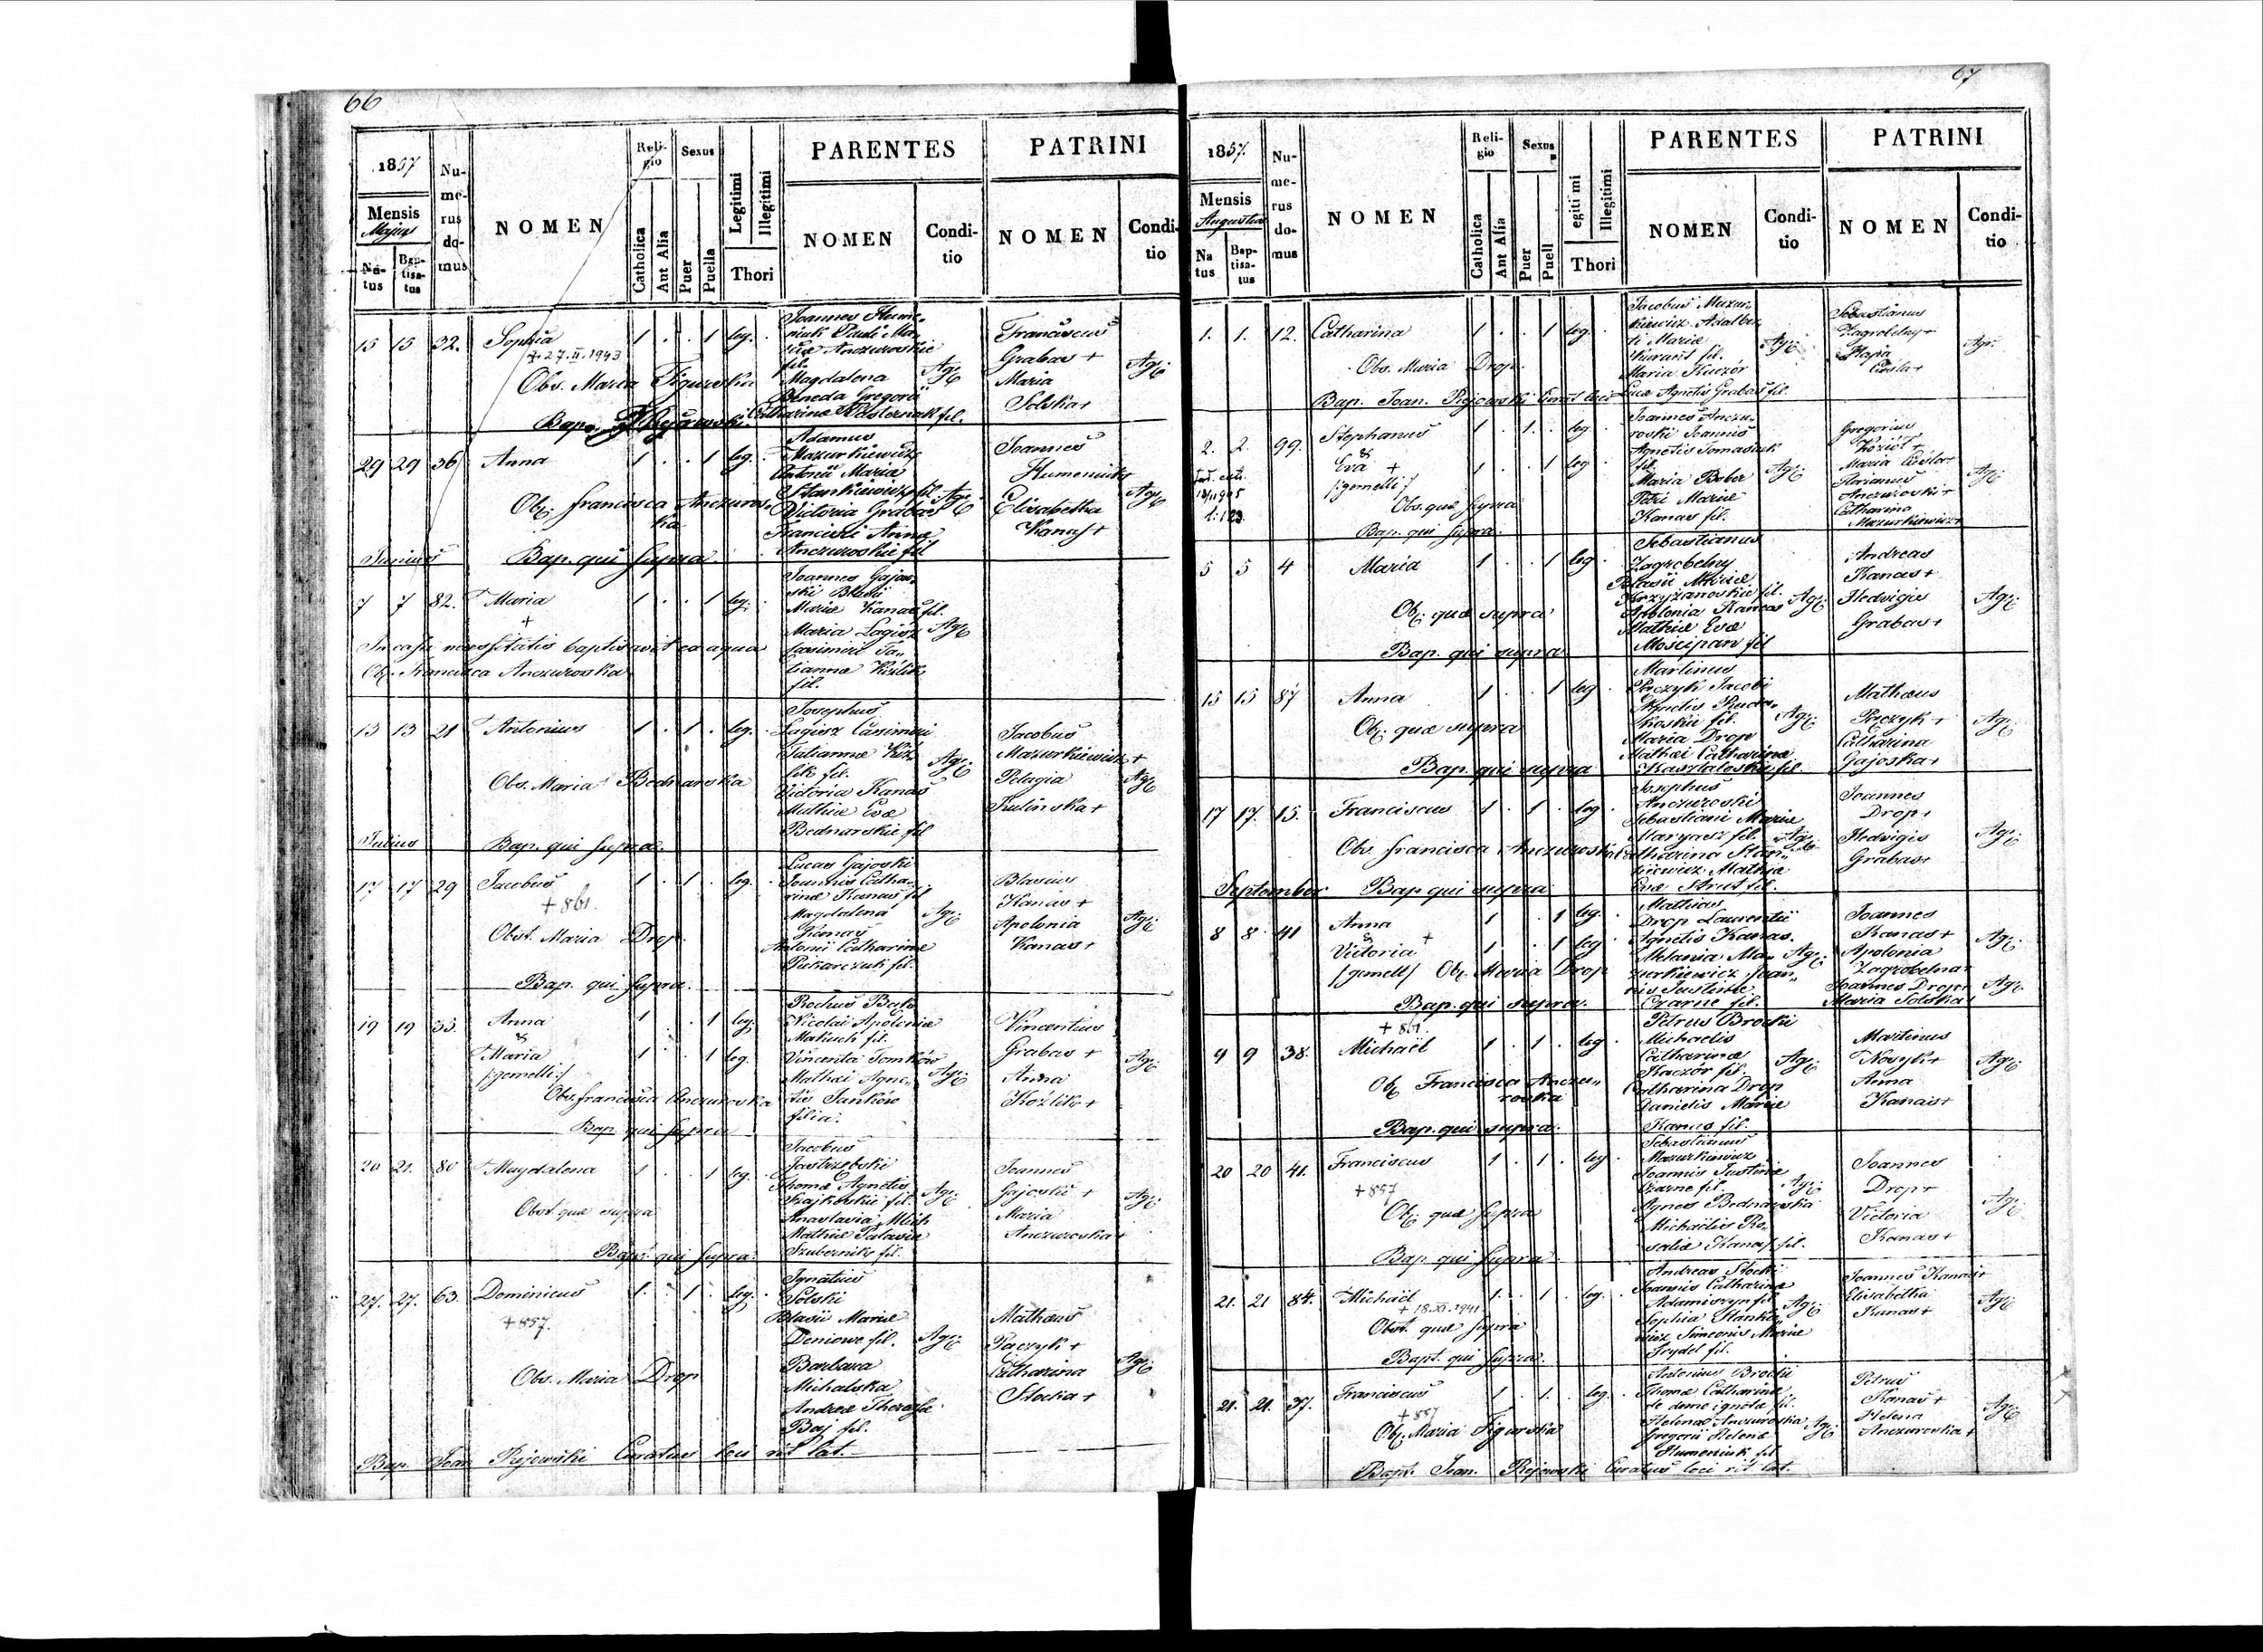 66
1857
Mensis
Majus
Natus
Baptisatus
Numerus domus
NOMEN
Religio
Catholica
Aut Alia
Sexus
Puer
Puella
Legitimi
Illegitimi
Thori
PARENTES
NOMEN
Conditio
PATRINI
NOMEN
Conditio
15 15 32. Sophia 1 . . 1 leg. .
+27.II.1943
Obs. Maria Figurska
Joannes Hume-
niuk Pauli Ma-
riæ Anczuroskie
fil.
Magdalena
Beneda Gregorii
Catharinæ Pasternak fil.
Agr.
Franciscus
Grabas +
Maria
Solska +
Agr.
29 29 36 Anna 1 . . 1 leg. .
Obs. Francisca Anczuros-
ka
Bap. qui supra.
Adamus
Mazurkiewicz
Antonii Maria
Stankiewicz fil.
Victoria Grabas
Francisci Anna
Anczuroskie fil
Agr.
Joannes
Humeniuk
Elisabetha
Kanas +
Agr.
Junius
7 7 82. Maria 1 . . 1 leg. .
+
In casu necessitatis baptisavit ex aqua
Obs. Francisca Anczuroska
Joannes Gajos-
ski Blasii
Mariæ Kanas fil.
Maria Lagisz
Casimiri Ta-
tianna Kozlik
fil.
Agr.
13 13 21 Antonius 1 . 1 . leg. .
Obs. Maria Bednarska
Bap. qui supra.
Josephus
Lagisz Casimiri
Tatiannæ Koz-
lik fil.
Victoria Kanas
Mathiæ Evæ
Bednarskie fil
Agr.
Jacobus
Mazurkiewicz +
Pelagia
Kulinska +
Agr.
Julius
17 17 29 Jacobus 1 . 1 . leg. .
+861.
Obst. Maria Drop
Bap. qui supra.
Lucas Gajoski
Joannis Catha-
rinæ Kanas fil
Magdalena
Antonii Catharinæ
Piekarczuk fil.
Agr.
Blasius
Kanas +
Apolonia
Kanas +
Agr.
19 19 33. Anna 1 . . 1 leg.
&
Maria 1 . . 1 leg.
/:gemelli:/
Obs. Francisca Anczuroska
Bap. qui supra
Rochus
Nicolai Apoloniæ
fil.
Vincenta Tomków
Mathæi Agne-
tis Sanków
filia.
Agr.
Vincentius
Grabas +
Anna
Kozlik +
Agr.
20 21. 80 Magdalena 1 . . 1 leg. .
Obst. quæ supra
Bap. qui supra.
Jacobus
Jastrzebski
Thomæ Agnetis
fil.
Anastasia
Mathiæ
Szubernik fil.
Agr.
Joannes
Gajoski +
Maria
Anczuroska +
Agr.
27. 27. 63. Dominicus 1. . 1 . leg. .
+857.
Obs. Maria Drop
Ignatius
Solski
Blasii Mariæ
fil.
Barbara
Michalska
Andreæ Theresa
Baj fil.
Agr.
Mathæus
Paczyk +
Catharina
Stocka +
Agr.
Bap. Joan Rejowski Curatus loci rit lat.
67
1857.
Mensis
Augustus
Natus
Baptisatus
Numerus domus
NOMEN
Religio
Catholica
Aut Alia
Sexus
Puer
Puell
egiti mi
Illegitimi
Thori
PARENTES
NOMEN
Conditio
PATRINI
NOMEN
Conditio
1. 1. 12. Catharina 1 . . 1 leg. .
Obs. Maria Drop.
Bap. Joan. Rejowski Curat loci
Jacobus Mazur-
kiewicz Adalber-
ti Mariæ
fil.
Maria Kaczór
Lucæ Agnetis Grabas fil.
Agr.
Sebastianus
Zagrobelny +
Agr.
2. 2. 99. Stephanus 1 . 1. . leg
&
Eva + 1 . . 1 leg
/:gemelli:/
Obs. quæ supra
Bap. qui supra.
Joannes Anczu-
roski Joannis
Agnetis Tomasiuk
fil.
Maria Bober
Petri Mariæ
Kanas fil.
Agr.
Gregorius
Koziół +
Maria
Florianus
Anczuroski +
Catharina
Mazurkiewicz +
Agr.
5 5 4 Maria 1 . . 1 leg. .
Obs. quæ supra
Bap. qui supra
Sebastianus
Zagrobelny
Blasii Mariæ
Krzyżanoskie fil.
Antonia Kanas
Mathiæ Evæ
Moscipan fil
Agr.
Andreas
Kanas +
Hedvigis
Grabas +
Agr.
15 15 87 Anna 1 . . 1 leg .
Obs. quæ supra
Bap. qui supra
Martinus
Paczyk Jacobi
Agnetis
fil.
Maria Drop
Mathæi Catharinæ
fil.
Agr.
Mathæus
Paczyk +
Catharina
Gajoska +
Agr.
17 17. 15. Franciscus 1 . 1 . leg .
Obs Francisca Anczuroska
Bap qui supra
Josephus
Anczuroski
Sebastiani Mariæ
fil.
Catharina Stan-
kiewicz Mathiæ
Evæ fil.
Agr.
Joannes
Drop +
Hedvigis
Grabas +
Agr.
September
8 8 41 Anna 1 . 1 leg.
&
Victoria + 1 . . 1 leg
/gemelli/ Obs. Maria Drop
Bap. qui supra.
Mathias
Drop Laurentii
Agnetis Kanas.
Melania Ma-
zurkiewicz Joan-
nis Justinæ
Czarne fil.
Agr.
Joannes
Kanas +
Apolonia
Zagrobelna +
Joannes Drop +
Maria Solska +
Agr.
Agr.
9 9 38. Michaël 1 . 1 . leg
+861.
Obs. Francisca Anczu-
roska
Bap. qui supra.
Petrus Brocki
Michaelis
Catharinæ
Kaczór fil.
Catharina Drop
Danielis Mariæ
Kanas fil.
Agr.
Martinus
Novyk +
Anna
Kanas +
Agr.
20 20 41. Franciscus 1 . 1 . leg .
+857
Obs. quæ supra
Bap. qui supra
Sebastianus
Mazurkiewicz
Joannis Justinæ
Czarne fil.
Agnes Bednarska
Michaëlis Ro-
saliæ Kanas fil.
Agr.
Joannes
Drop +
Victoria
Kanas +
Agr.
21. 21 84. Michaël 1. . 1 . leg. .
+18.XI.1941
Obst. quæ supra
Bapt. qui supra.
Andreas Stocki
Joannis Catharinæ
Adamiszyn fil
Sophia Stankie-
wicz Simeonis Mariæ
Frydel fil.
Agr.
Joannes Kanas +
Elisabetha
Kanas +
Agr.
21. 21. 37. Franciscus 1 . 1. . leg.
+857
Obs. Maria Figurska
Antonius Brocki
Thomæ Catharinæ
de domo ignotæ fil.
Helena Anczuroska
Gregorii Helenæ
Humeniuk fil
Agr.
Petrus
Kanas +
Helena
Anczuroska +
Agr.
Bapt. Joan. Rejowski Curatus loci rit lat.